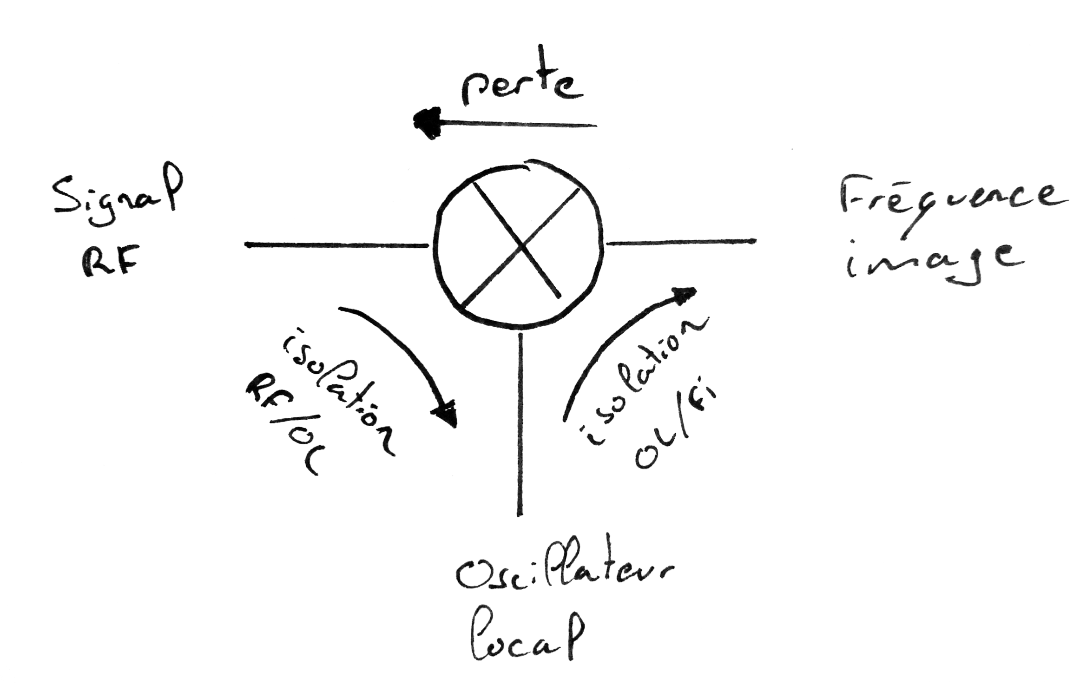 perte
Signal
RF
Fréquence
image
isolation
RF/OL
isolation
OL/Fi
Oscillateur
local